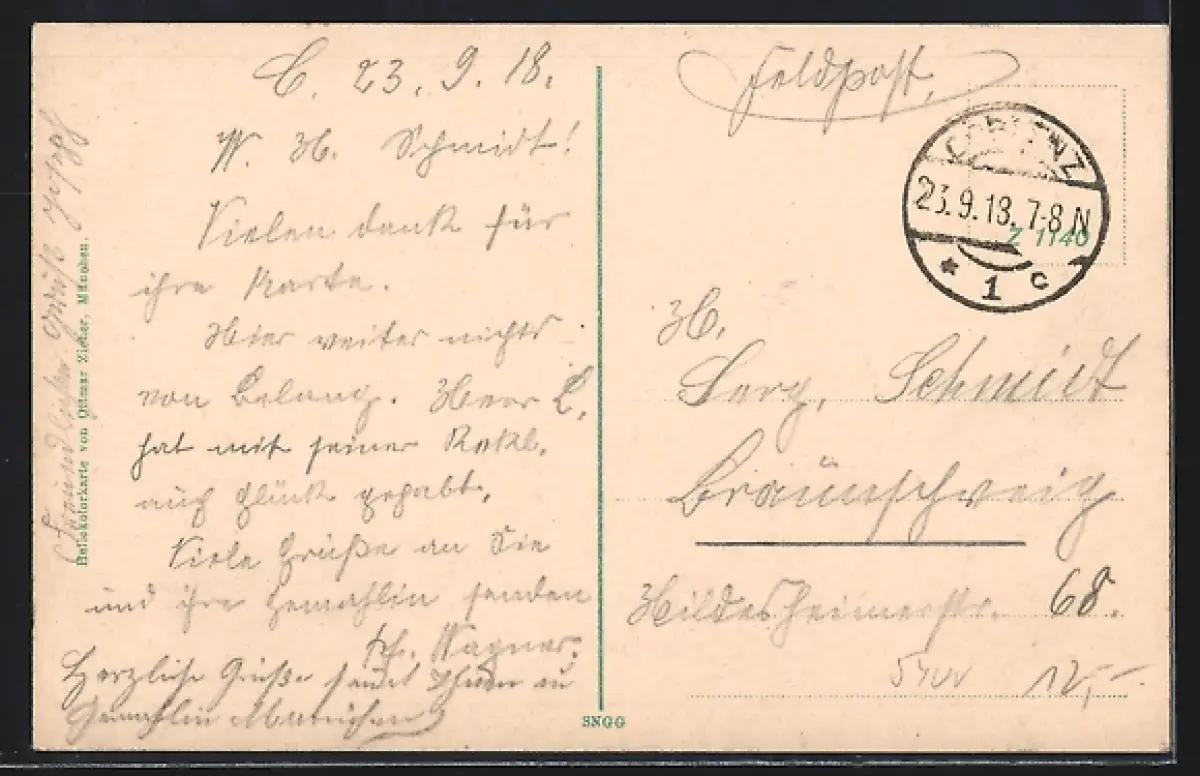 C. 23. 9. 18.
W. H. Schmidt!
Vielen dank für
ihre Karte.
Hier weiter nichts
von Belang. Herr L.
hat mit seiner Rekl.
auch Glück gehabt.
Viele Grüße an Sie
und ihre Gemahlin senden
Wagner.
Herzliche Grüße sendet Ihnen u
Gemahlin
Freundlichen Gruß
Heliokolorkarte von Ottmar Zieher, München.
SNGG
Feldpost.
COBLENZ
23.9.18. 7-8 N
* 1 c
Z 1140
H.
Serg. Schmidt
Braunschweig
Hildesheimerstr. 68.
12,-